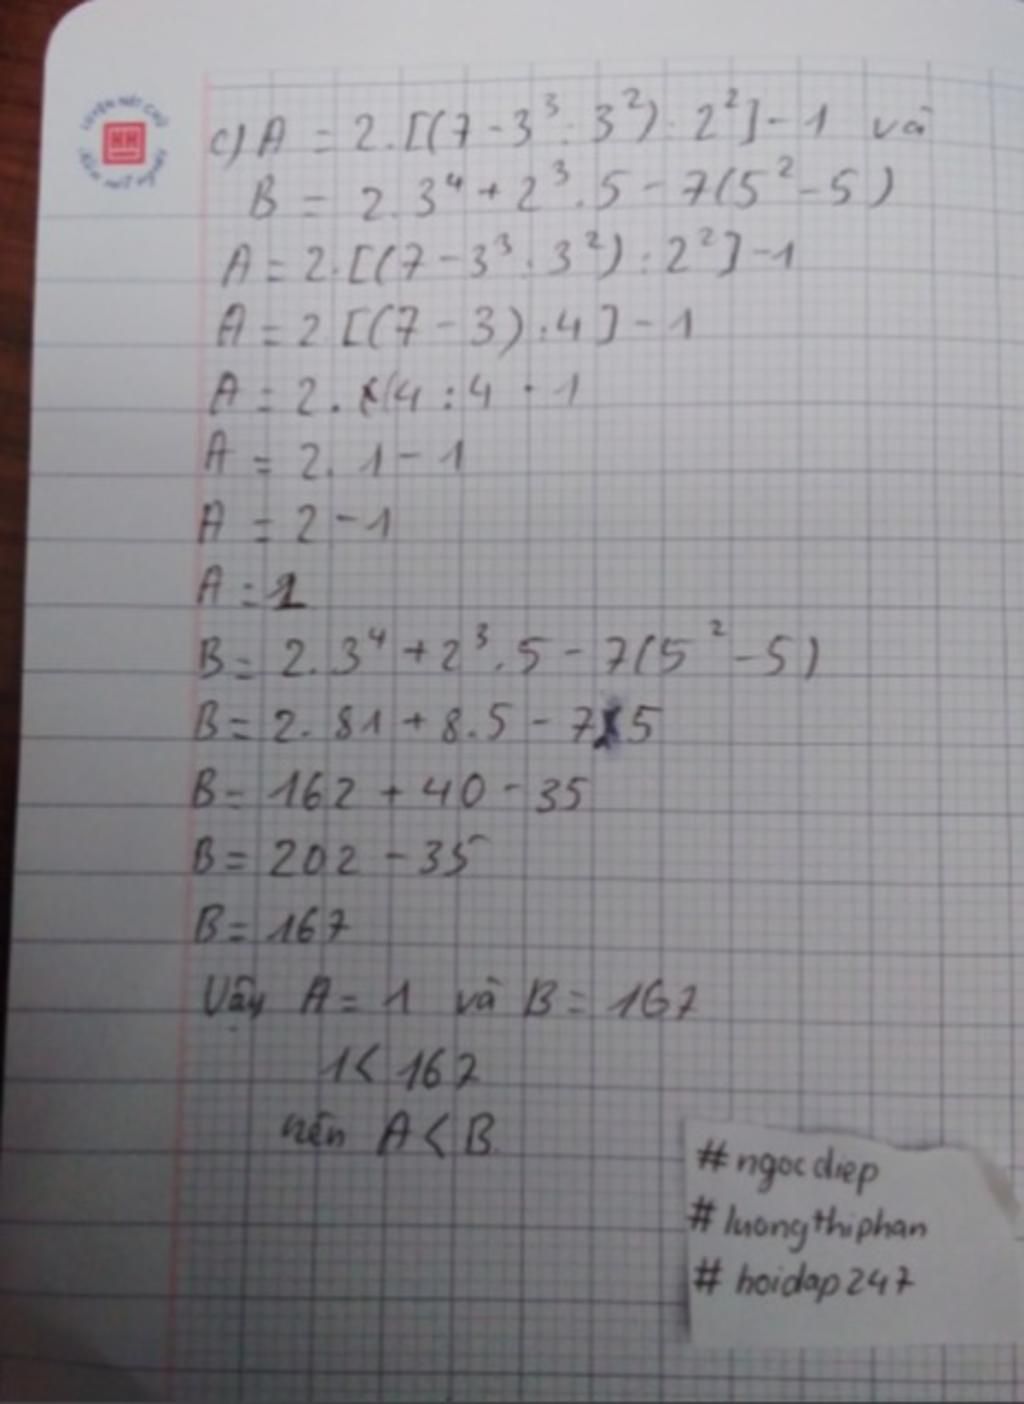 c) A = 2.[(7-3³:3²):2²]-1 và
B = 2.3⁴+2³.5-7(5²-5)
A = 2.[(7-3³:3²):2²]-1
A = 2[(7-3):4]-1
A = 2.4:4-1
A = 2.1-1
A = 2-1
A = 1
B = 2.3⁴+2³.5-7(5²-5)
B = 2.81+8.5-7.5
B = 162+40-35
B = 202-35
B = 167
Vậy A = 1 và B = 167
1<167
nên A<B.
#ngocdiep
#luongthiphan
#hoidap247